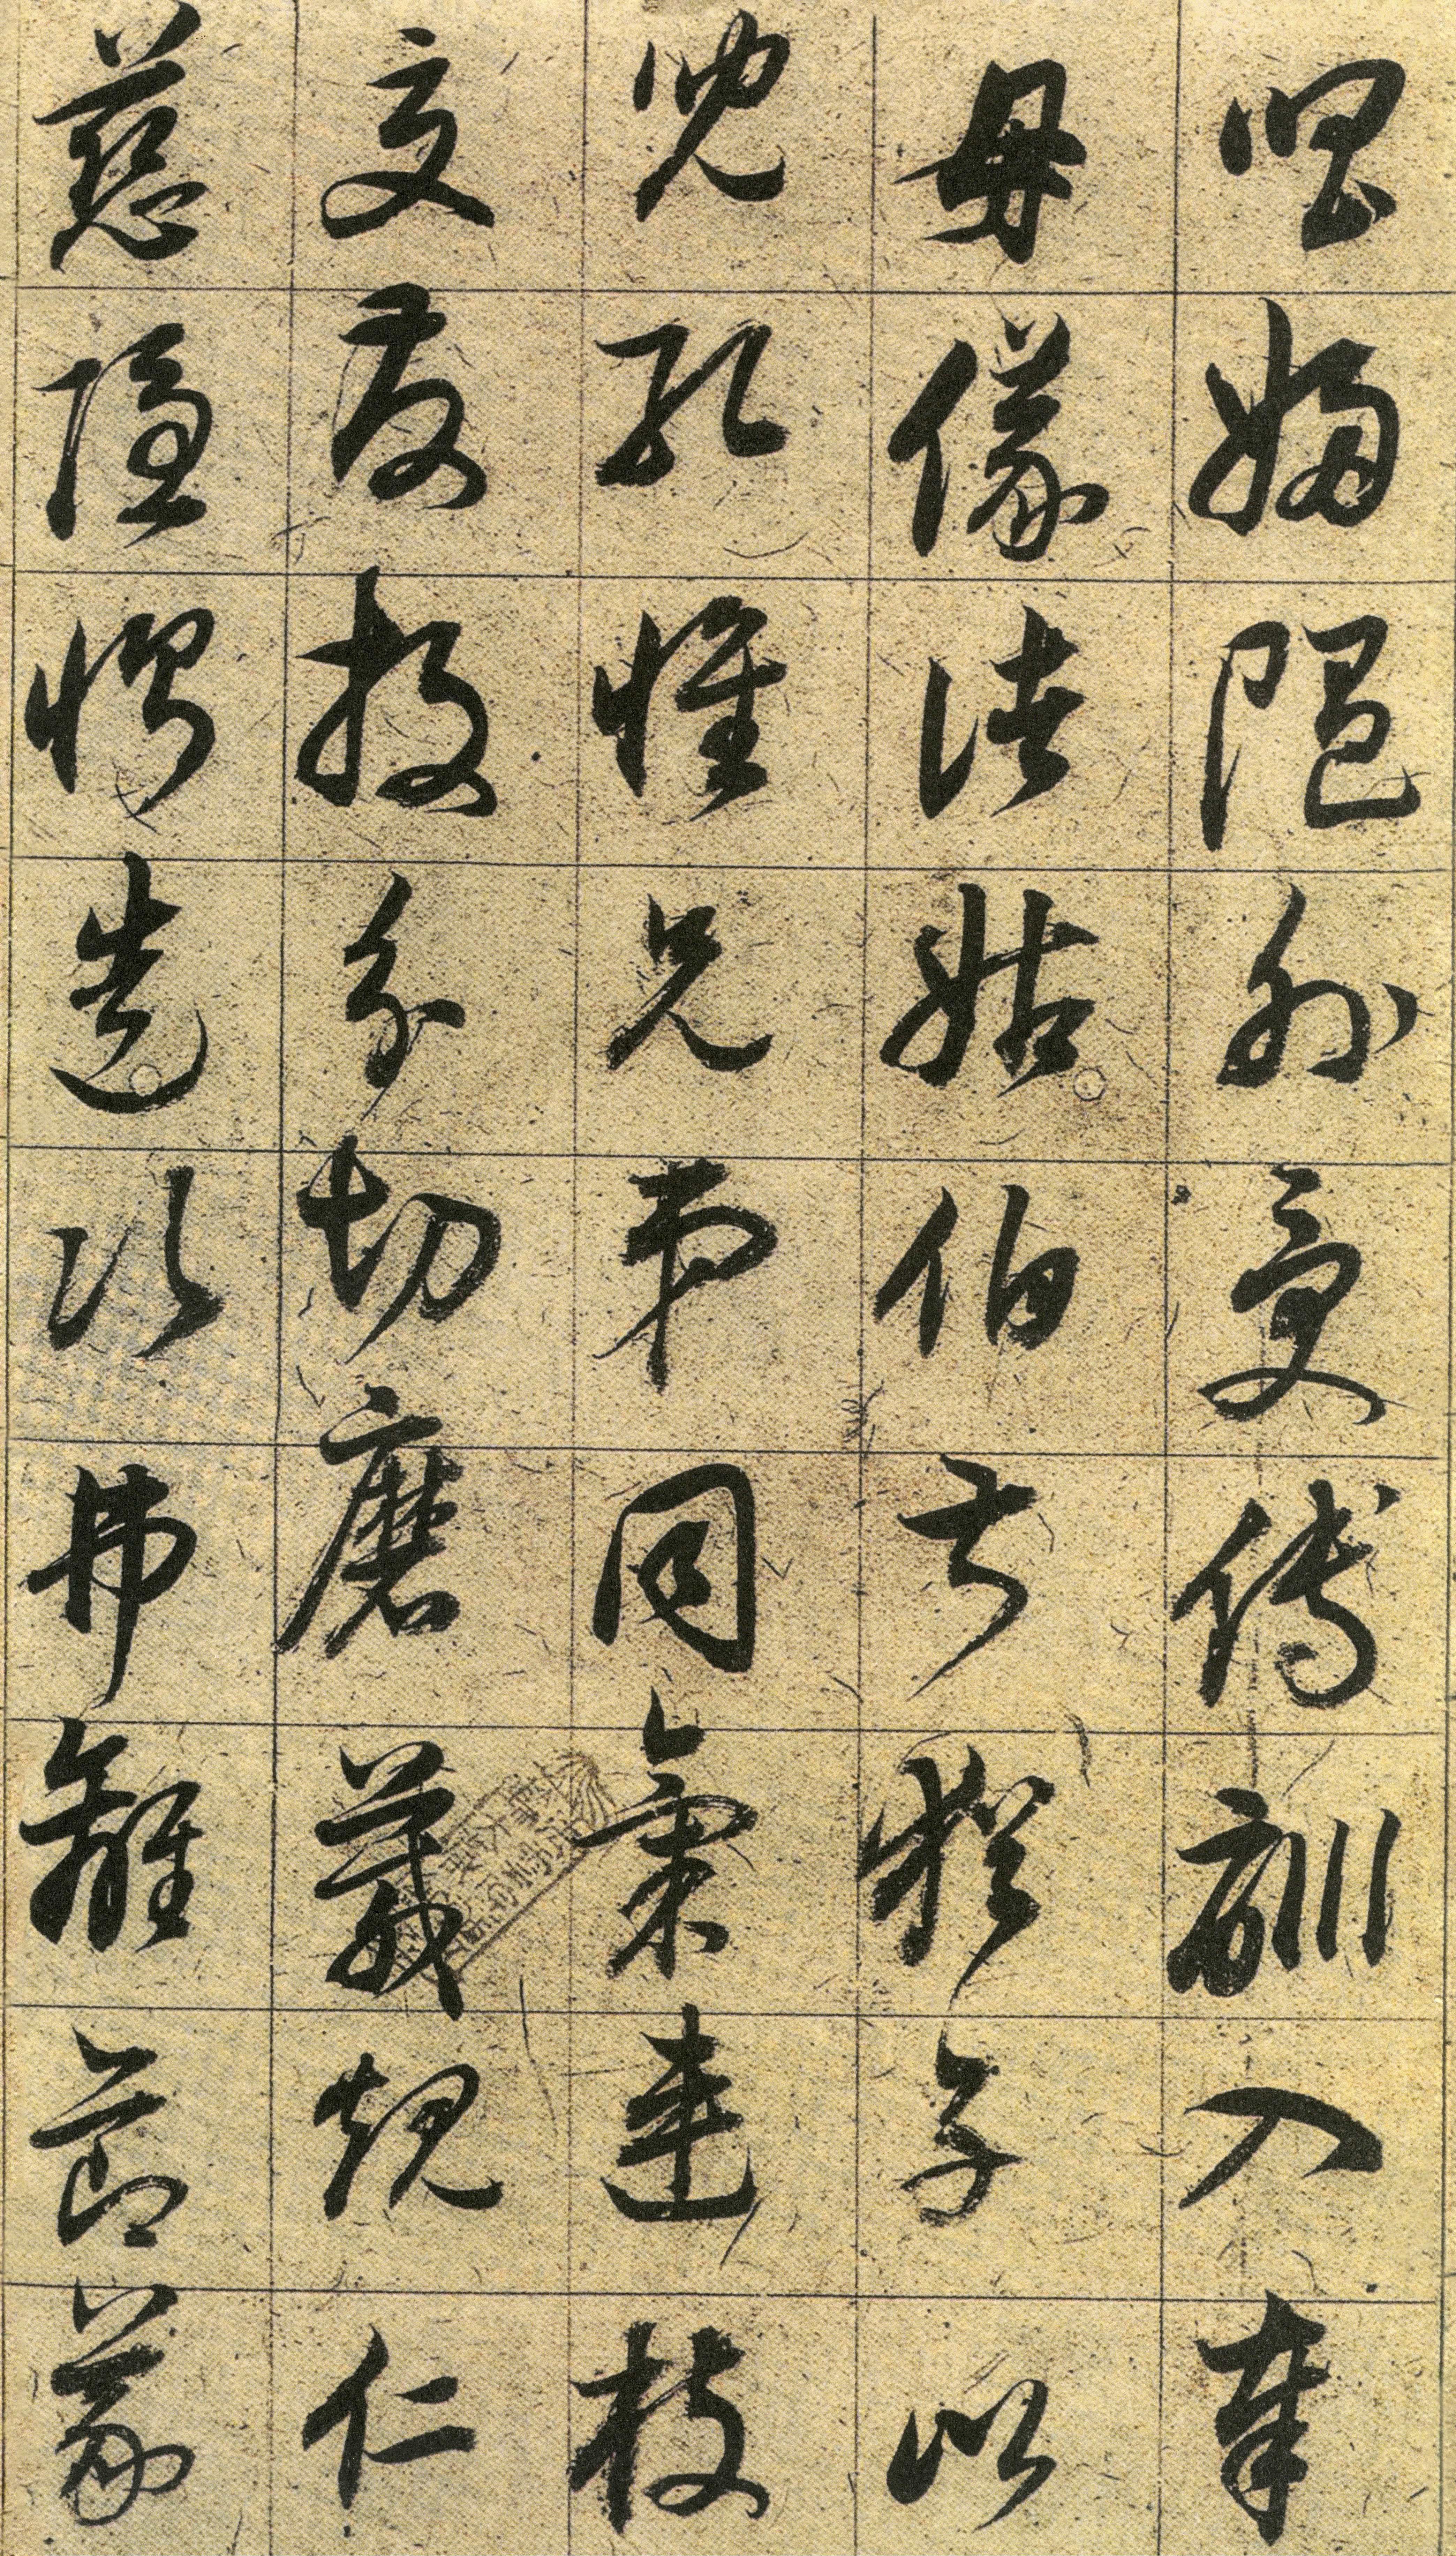 唱婦随外受傅訓入奉
母儀諸姑伯叔猶子比
兒孔懷兄弟同氣連枝
交友投分切磨箴規仁
慈隱惻造次弗離節義